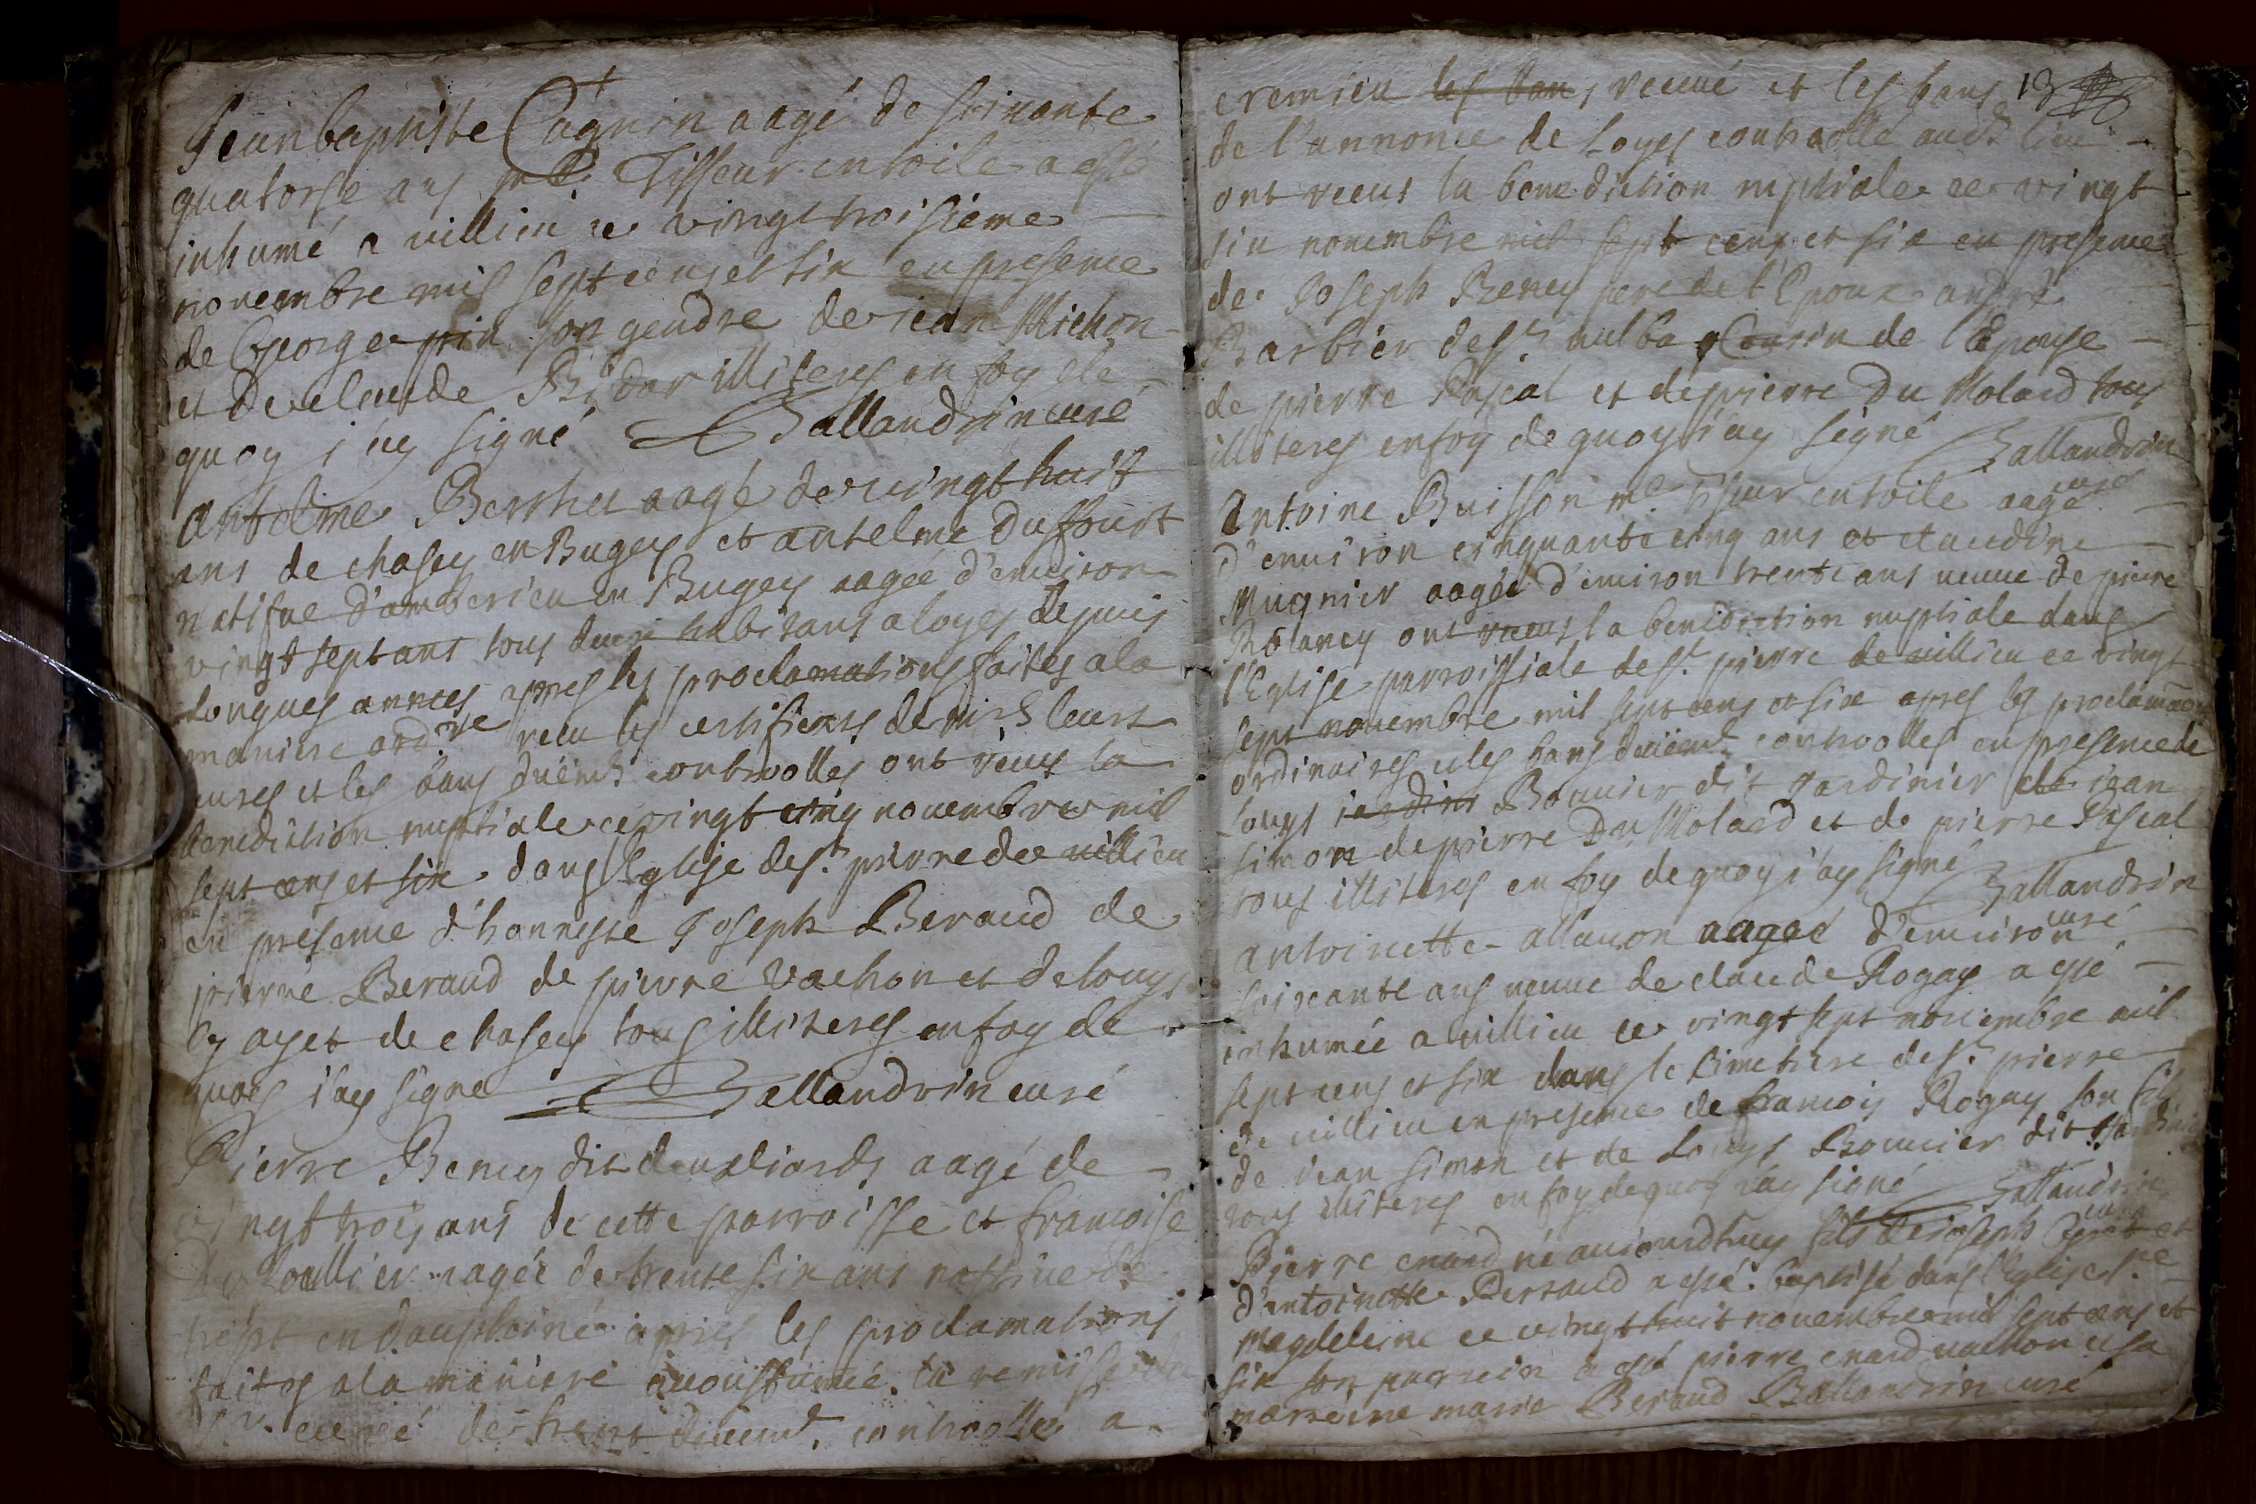 Jeanbaptiste Cagnin aagé de soixante
quatorse ans me. Tisseur en toile a esté
inhumé a villieu ce vingt troisieme
novembre mil sept cens et six en presence
de George pin son gendre de jean Michon
et de claude Bidar illiteres en foy de
quoy j'ay signé Ballandrin curé
Antelme Berthet aagé de vingt huit
ans de chasey en Bugey et antelme Duffourt
natifve d'amberieu en Bugey aagée d'environ
vingt sept ans tous deux habitans a loyes depuis
longues années apres les proclamations faites a la
maniere ordre receu les certificats de mrs leurs
curés et les bans duëmt controolles ont receus la
benediction nuptiale ce vingt cinq novembre mil
sept cens et six dans l'Eglise de st. pierre de villieu
en presence d'honneste Joseph Beraud de
pierre Beraud de pierre vachon et de louys
ayet de chasey tous illiteres en foy de
quoy j'ay signe Ballandrin curé
Pierre Beney dit deux liards aagé de
vingt trois ans de cette parroisse et francoise
aagée de trente six ans natifve de
trept en dauphiné apres les proclamations
faites a la maniere acoustumée la remise du
sr. curé de trept düemt. controolle a
13
cremieu <s>les bans</s> receue et les bans
de l'annonce de Loyes controolle audt lieu
ont receus la benediction nuptiale ce vingt
six novembre mil sept cens et six en presence
de Joseph Beney pere de l'Epoux andré
Barbier de st vulba Cousin de l'Epouse
de pierre Pascal et de pierre Du Molard tous
illiteres en foy de quoy j'ay signé Ballandrin
curé
Antoine Buisson me. tisseur en toile aagé
d'environ cinquante cinq ans et claudine
Mugnier aagée d'environ trente ans veuve de pierre
Rolancy ont receus la benediction nuptiale dans
l'Eglise parroissiale de st. pierre de villieu ce vingt
sept novembre mil sept cens et six apres les proclamaons
ordinaires et les bans deüemt controolles en presence de
Louys <s>jardins</s> Bouvier dit jardinier de jean
simon de pierre Du Molard et de pierre Pascal
tous illiteres en foy de quoy j'ay signé Ballandrin
curé
antoinette allauon aagée d'environ
soixante ans veuve de claude Rogay a esté
inhumée a villieu ce vingt sept novembre mil
sept cens et six dans le Cimetiere de st. pierre
de villieu en presence de francois Rogay son fils
de jean simon et de Louys Bouvier dit jardinier
tous illiteres en foy de quoy j'ay signé Ballandrin
curé
Pierre enard né aujourdhuy fils de joseph et
d'antoinette Berraud a esté baptisé dans l'Eglise ste
Magdeleine ce vingt huit novembre mil sept cens et
six son parrein a esté pierre enard vachon et sa
marreine marie Beraud Ballandrin curé